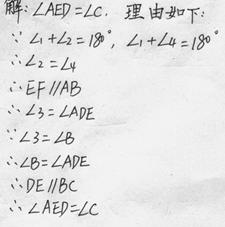 解: ∠AED=∠C. 理由如下:
∵ ∠1+∠2=180°, ∠1+∠4=180°
∴ ∠2=∠4
∴ EF//AB
∴ ∠3=∠ADE
∵ ∠3=∠B
∴ ∠B=∠ADE
∴ DE//BC
∴ ∠AED=∠C